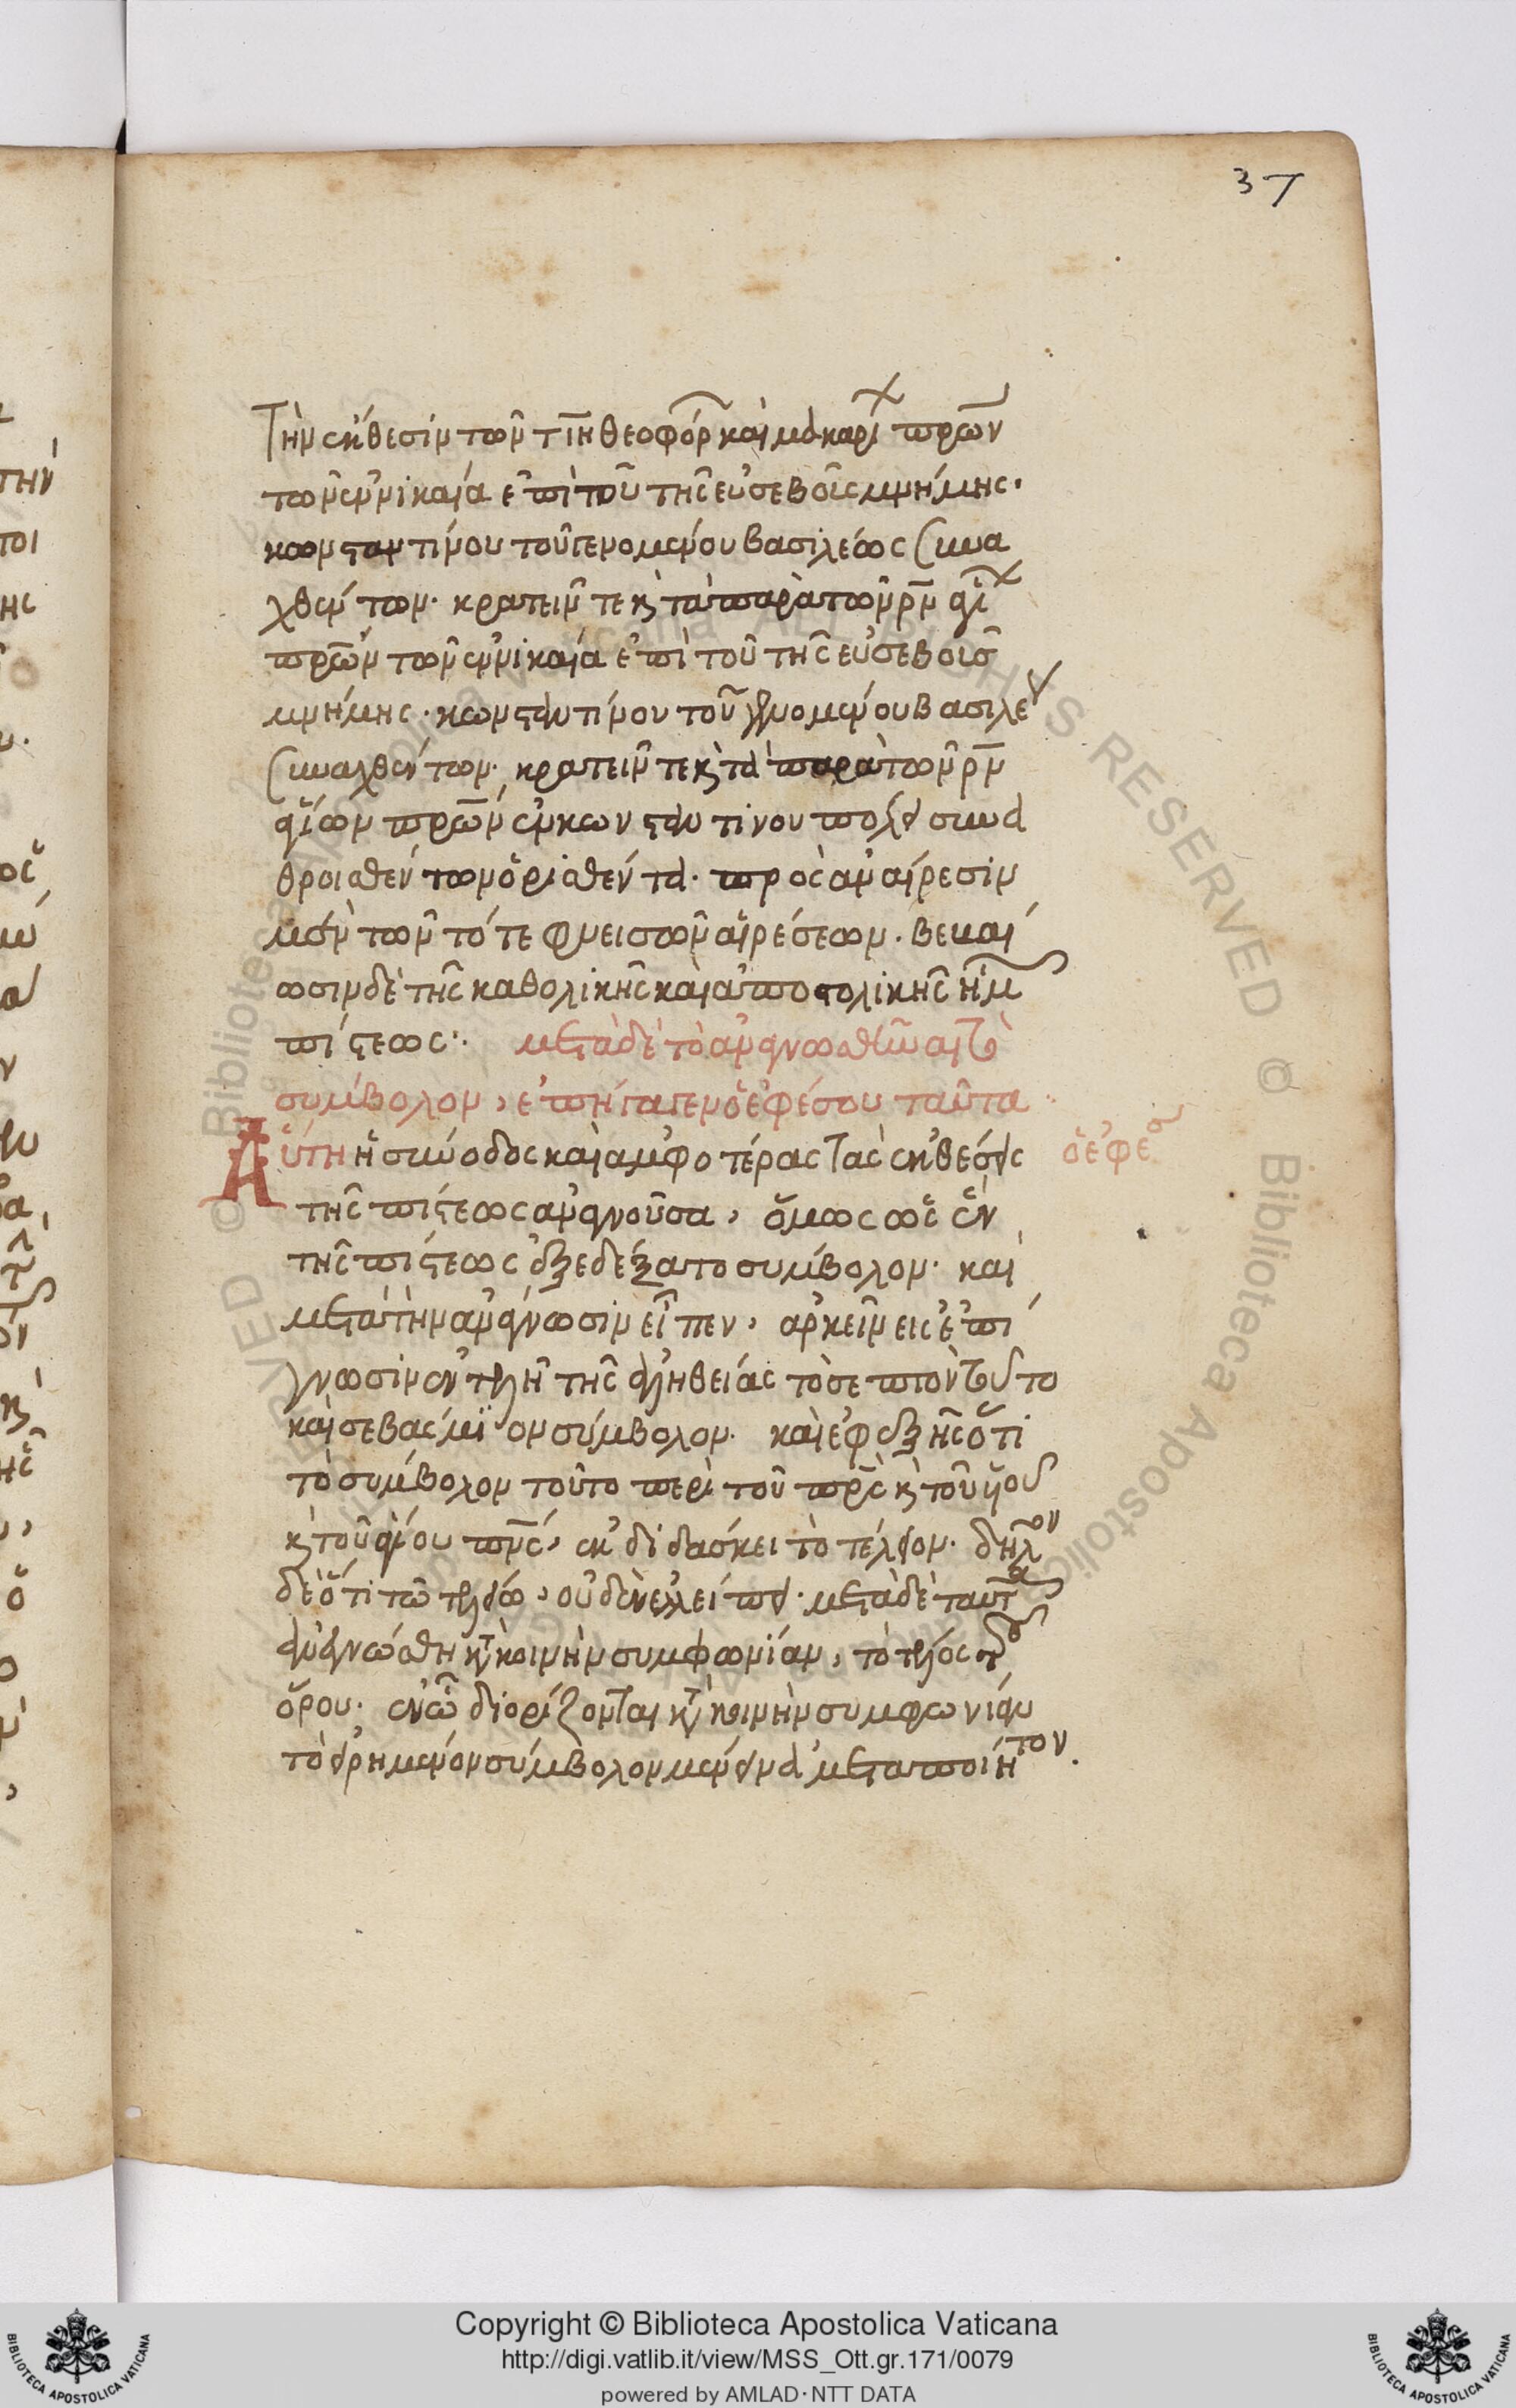 37
Τὴν ἔκθεσιν τῶν τιη θεοφόρ καὶ μακαρί πρων
τῶν ἐν νικαία ἐπὶ τοῦ τῆς εὐσεβοῦς μνήμης·
κωνσταντίνου τοῦ γενομένου βασιλέως συνα
χθέντων· κρατεῖν τε κ τὰ παρὰ τῶν ρν ἁγί
πρων τῶν ἐν νικαία ἐπὶ τοῦ τῆς εὐσεβοῦς
μνήμης· κωνσταντίνου τοῦ γενομένου βασιλε
συναχθέντων· κρατεῖν τε κ τὰ παρὰ τῶν ρν
ἁγίων πρων ἐν κωνσταντίνου πόλει συνα
θροισθέντων ὁρισθέντα· πρὸς ἀναίρεσιν
μὲν τῶν τότε φυεισῶν αἱρέσεων· βεβαί
ωσιν δὲ τῆς καθολικῆς καὶ ἀποστολικῆς ἡμ
πίστεως·. μετὰ δὲ τὸ ἀναγνωσθῆναι τὸ
σύμβολον, ἐπήγαγεν ὁ ἐφέσου ταῦτα
Αὕτη ἡ σύνοδος καὶ ἀμφοτέρας τὰς ἐκθέσεις
ὁ ἐφέσ
τῆς πίστεως ἀναγνοῦσα, ὅμως ὡς ἓν
τῆς πίστεως ἐξεδέξατο σύμβολον· καὶ
μετὰ τὴν ἀνάγνωσιν εἶπεν, ἀρκεῖν εἰς ἐπί
γνωσιν ἐντελῆ τῆς ἀληθείας τὸ σεπτὸν τοῦτο
καὶ σεβασμϊον σύμβολον· καὶ ἐφεξῆς ὅτι
τὸ σύμβολον τοῦτο περὶ τοῦ πρς κ τοῦ υἱοῦ
κ τοῦ ἁγίου πνς, ἐκδιδάσκει τὸ τέλειον· δῆλον
δὲ ὅτι τῶ τελείω, οὐδὲν ἐλλείπει· μετὰ δὲ ταῦτα
ἀνεγνώσθη κτ κοινὴν συμφωνίαν, τὸ τέλος τοῦ
ὅρου· ἐν ὧ διορίζονται κτ κοινὴν συμφωνίαν
τὸ εἰρημένον σύμβολον μένειν ἀμεταποίητον.
Copyright © Biblioteca Apostolica Vaticana
http://digi.vatlib.it/view/MSS_Ott.gr.171/0079
powered by AMLAD·NTT DATA